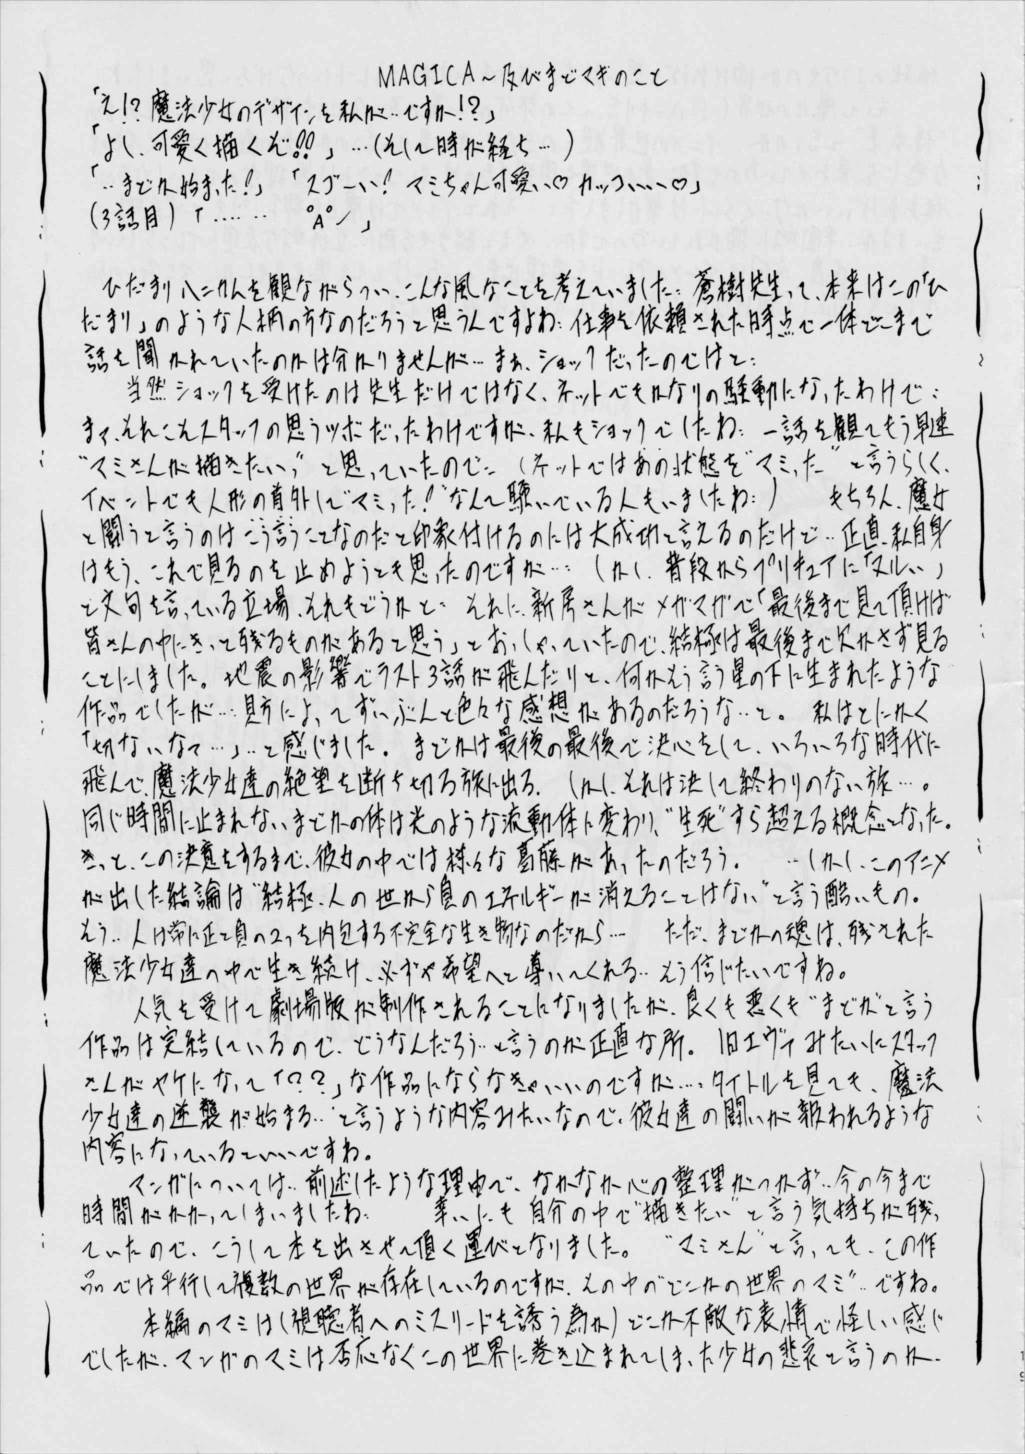 MAGICA～及びまどマギのこと
「え!? 魔法少女のデザインを私が‥ですか!?」
「よし、可愛く描くぞ!!」…(そして時が経ち…)
「‥まどか始まった!」「スゴーい! マミちゃん可愛い♡ カッコいい♡」
(3話目)「‥‥‥ °A°ノ」
ひだまりハニカムを観ながらつい、こんな風なことを考えていました: 蒼樹先生って、本来はこの「ひ
だまり」のような人柄の方なのだろうと思うんですよね: 仕事を依頼された時点で一体どこまで
話を聞かれていたのかは分かりませんが… まぁ、ショックだったのではと:
当然ショックを受けたのは先生だけではなく、ネットでもかなりの騒動になったわけで:
まァ、それこそスタッフの思うツボだったわけですが、私もショックでしたね: 一話を観てもう早速
"マミさんが描きたい!" と思っていたので: (ネットではあの状態を"マミった"と言うらしく、
イベントでも人形の首外して"マミった!"なんて騒いでいる人もいましたね:) もちろん、魔女
と闘うと言うのはこう言うことなのだと印象付けるのには大成功と言えるのだけど‥正直、私自身
はもう、これで見るのを止めようとも思ったのですが… しかし、普段からプリキュアに「ヌルい」
と文句を言っている立場、それもどうかと: それに、新房さんがメガマガで「最後まで見て頂けば
皆さんの中にきっと残るものがあると思う」とおっしゃっていたので、結極は最後まで欠かさず見る
ことにしました。地震の影響でラスト3話が飛んだりと、何かそう言う星の下に生まれたような
作品でしたが…: 見方によってずいぶんと色々な感想があるのだろうな‥と。 私はとにかく
「切ないなァ…」‥と感じました。 まどかは最後の最後で決心をして、いろいろな時代に
飛んで、魔法少女達の絶望を断ち切る旅に出る. しかし、それは決して終わりのない旅…。
同じ時間に止まれないまどかの体は光のような流動体に変わり、"生死"すら超える概念となった。
きっと、この決意をするまで、彼女の中では様々な葛藤があったのだろう。 ‥しかし、このアニメ
が出した結論は"結極、人の世から負のエネルギーが消えることはない"と言う酷いもの。
そう‥人は常に正と負の2つを内包する不完全な生き物なのだから… ただ、まどかの魂は、残された
魔法少女達の中で生き続け、必ずや希望へと導いてくれる‥そう信じたいですね。
人気を受けて劇場版が制作されることになりましたが、良くも悪くも"まどか"と言う
作品は完結しているので、どうなんだろう‥と言うのが正直な所。 旧エヴァみたいにスタッフ
さんがヤケになって「??」な作品にならなきゃいいのですが…. タイトルを見ても、魔法
少女達の逆襲が始まる‥と言うような内容みたいなので、彼女達の闘いが報われるような
内容になっているといいですね。
マンガについては‥前述したような理由で、なかなか心の整理がつかず‥今の今まで
時間がかかってしまいましたね: 幸いにも自分の中で"描きたい"と言う気持ちが残っ
ていたので、こうして本を出させて頂く運びとなりました。 "マミさん"と言っても、この作
品では平行して複数の世界が存在しているのですが、その中の"どこかの世界のマミ"‥ですね。
本編のマミは(視聴者へのミスリードを誘う為か)どこか不敵な表情で怪しい感じ
でしたが、マンガのマミは否応なくこの世界に巻き込まれてしまった少女の悲哀と言うのか、